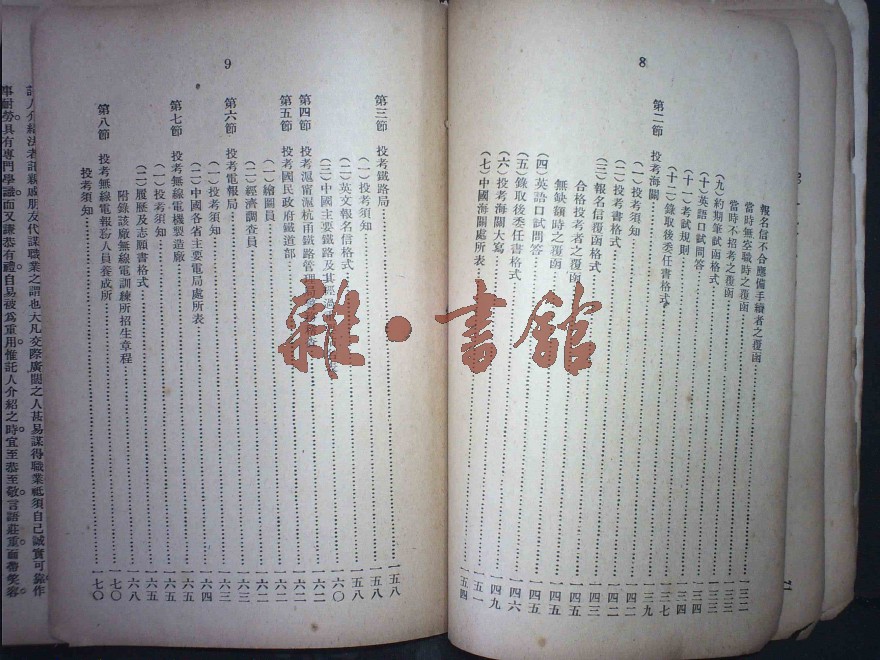 8
報名信不合應備手續者之覆函………一三二
當時無職時之覆函………一三三
當時不招考之覆函………一三三
（九）約期筆試函格式………一三四
（十）英語口試問答………一三四
（十一）考試規則………一三七
（十二）錄取後委任書格式………一三九
第二節　投考海關………一四二
（一）投考須知………一四二
（二）投考書格式………一四三
（三）報名信覆函格式………一四五
合格投考者之覆函………一四五
無缺額時之覆函………一四五
（四）英語口試問答………一四六
（五）錄取後委任書格式………一四九
（六）投考海關大寫………一五一
（七）中國海關處所表………一五四
9
第三節　投考鐵路局………一五八
（一）投考須知………一五八
（二）英文報名信格式………一五八
（三）中國主要鐵路及其經過………一六〇
第四節　投考滬甯滬杭甬鐵路管理局………一六二
第五節　投考國民政府鐵道部………一六二
（一）繪圖員………一六二
（二）經濟調查員………一六二
第六節　投考電報局………一六三
（一）投考須知………一六三
（二）中國各省主要電局處所表………一六四
第七節　投考無線電機製造廠………一六五
（一）投考須知………一六五
（二）履歷及志願書格式………一六五
附錄該廠無線電訓練所招生章程………一六八
第八節　投考無線電報務人員養成所………一七〇
投考須知………一七〇
託人介紹法者託親戚朋友代謀職業之謂也大凡交際廣闊之人甚易謀得職業祗須自己誠實可靠作
事耐勞具有專門學識而又謙恭有禮自易被爲重用惟託人介紹之時宜至恭至敬言語莊重面帶笑容
雜·書館